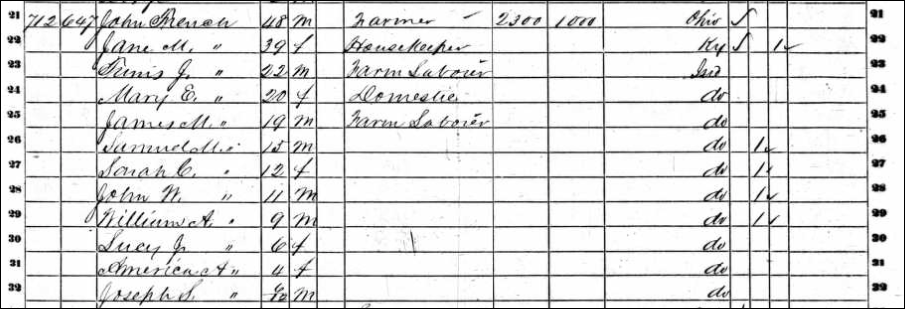 21 712 647 John French 48 M Farmer 2300 1000 Ohio 21
22 Jane M. " 39 f Housekeeper Ky 1 22
23 Tunis J. " 22 M Farm Labourer Ind 23
24 Mary E. " 20 f Domestic do 24
25 James M. " 19 M Farm Labourer do 25
26 Samuel M. " 15 M do 1 26
27 Sarah C. " 12 f do 1 27
28 John W. " 11 M do 1 28
29 William A. " 9 M do 1 29
30 Lucy J. " 6 f do 30
31 America A " 4 f do 31
32 Joseph S. " M do 32